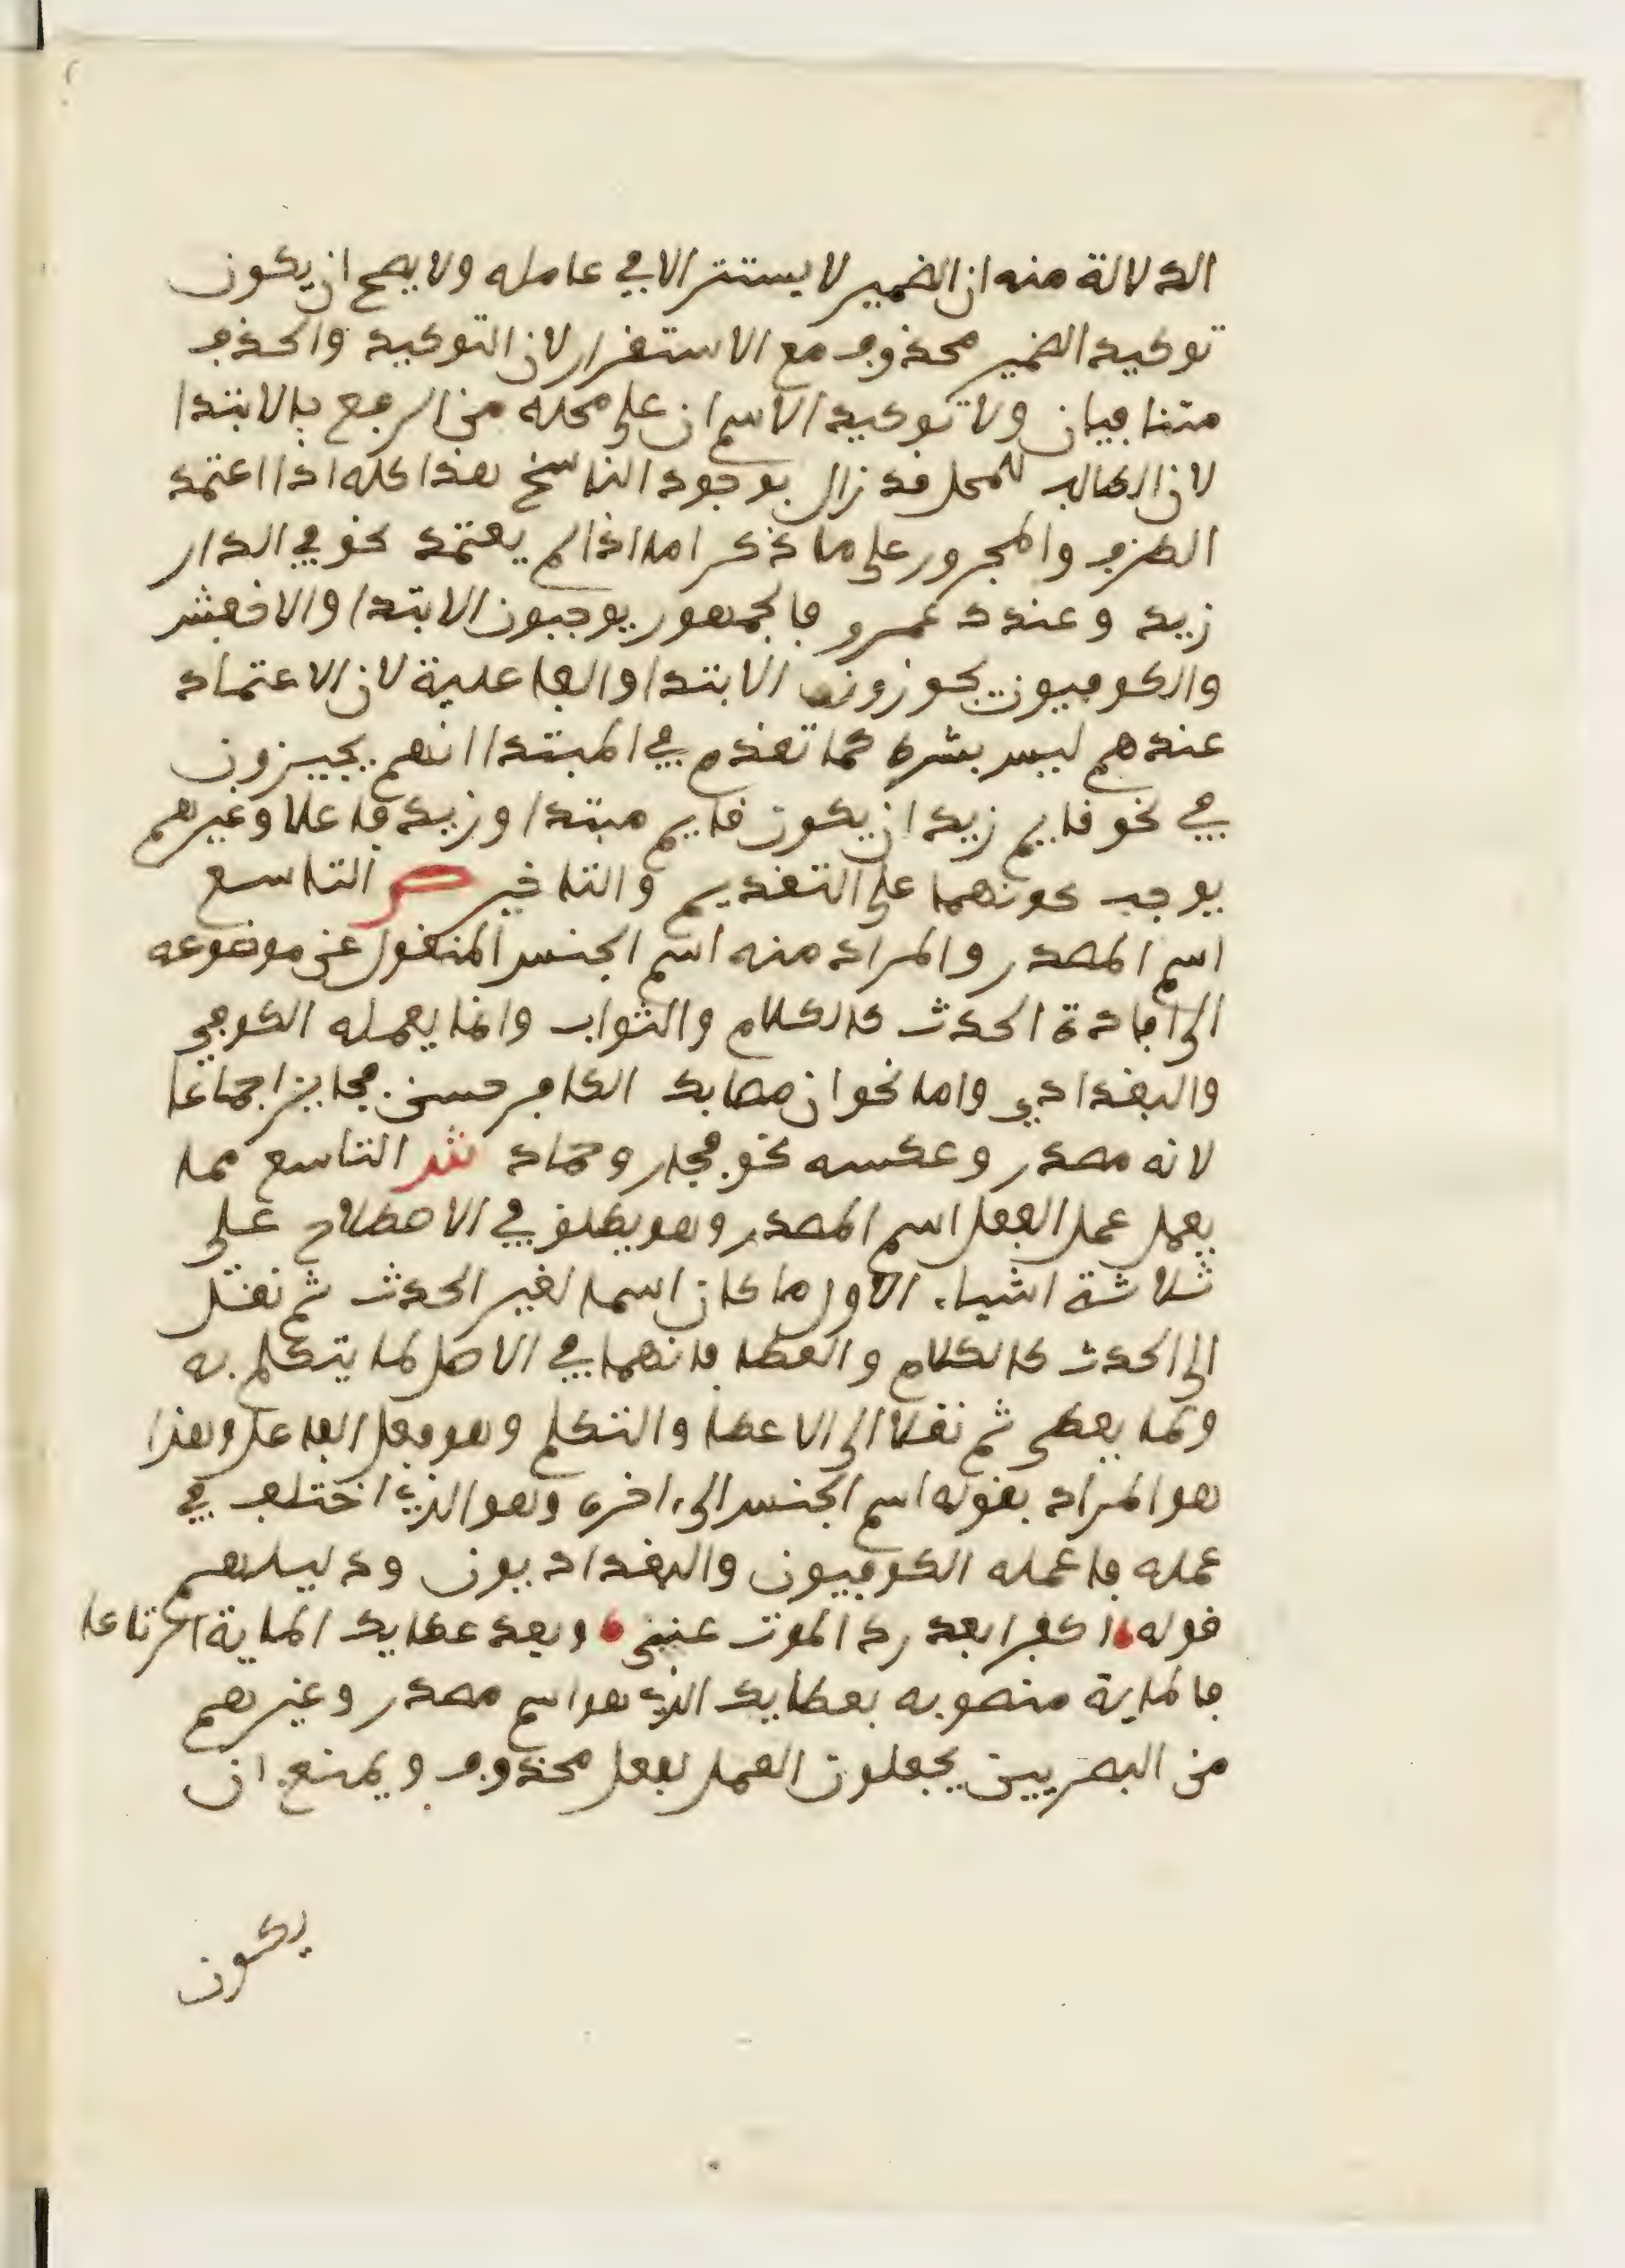 الدلالة منه ان الضمير لا يستتر الا في عامله ولا يصح ان يكون
توكيد الضمير محذوف مع الاستقرار لان التوكيد والحذف
متنافيان ولا توكيد الاسم ان على محله من الرفع بالابتدا
لان الطالب للمحل قد زال بوجود الناسخ هذا كله اذا اعتمد
الظرف والمجرور على ما ذكر اما اذا لم يعتمد نحو في الدار
زيد وعندك عمرو فالجمهور يوجبون الابتدا والاخفش
والكوفيون يجوزون الابتدا والفاعلية لان الاعتماد
عندهم ليس بشرط كما تقدم في المبتدا انهم يجيزون
في نحو قايم زيد ان يكون قايم مبتدا وزيد فاعلا وغيرهم
يوجب كونهما على التقديم والتاخير ص التاسع
اسم المصدر والمراد منه اسم الجنس المنقول عن موضوعه
الى افادة الحدث كالكلام والثواب وانما يعمله الكوفي
والبغدادي واما نحو ان مصابك الكافر حسن فجايز اجماعا
لانه مصدر وعكسه نحو فجار وحماد ش التاسع مما
يعمل عمل الفعل اسم المصدر وهو يطلق في الاصطلاح على
ثلاثة اشياء الاول ما كان اسما لغير الحدث ثم نقل
الى الحدث كالكلام والعطا فانهما في الاصل لما يتكلم به
ولما يعطى ثم نقلا الى الاعطا والتكلم وهو فعل الفاعل وهذا
هو المراد بقوله اسم الجنس الى اخره وهو الذي اختلف في
عمله فاعمله الكوفيون والبغداديون ودليلهم
قوله اكفرا بعد رد الموت عني وبعد عطايك الماية الرتاعا
فالماية منصوبه بعطايك الذي هو اسم مصدر وغيرهم
من البصريين يجعلون العمل لفعل محذوف ويمنع ان
يكون